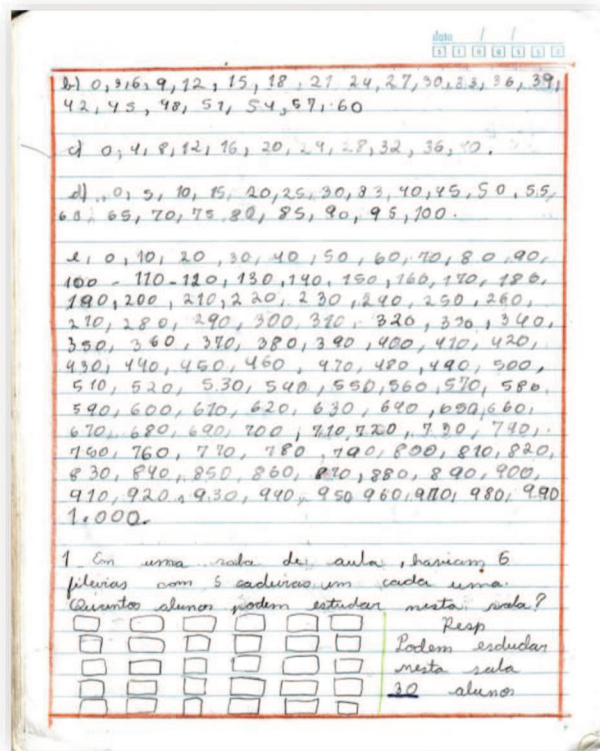 data / /
b) 0, 3, 6, 9, 12, 15, 18, 21 24, 27, 30, 33, 36, 39,
42, 45, 48, 51, 54, 57, 60
c) 0, 4, 8, 12, 16, 20, 24, 28, 32, 36, 40.
d) 0, 5, 10, 15, 20, 25, 30, 33, 40, 45, 50, 55,
60, 65, 70, 75, 80, 85, 90, 95, 100.
e, 0, 10, 20, 30, 40, 50, 60, 70, 80, 90,
100 - 110 - 120, 130, 140, 150, 160, 170, 180,
190, 200, 210, 220, 230, 240, 250, 260,
270, 280, 290, 300, 310, 320, 330, 340,
350, 360, 370, 380, 390, 400, 410, 420,
430, 440, 450, 460, 470, 480, 490, 500,
510, 520, 530, 540, 550, 560, 570, 580,
590, 600, 610, 620, 630, 640, 650, 660,
670, 680, 690, 700, 710, 720, 730, 740,
750, 760, 770, 780, 790, 800, 810, 820,
830, 840, 850, 860, 870, 880, 890, 900,
910, 920, 930, 940, 950 960, 970, 980, 990
1.000.
1 Em uma sala de aula, haviam 6
fileiras com 5 cadeiras um cada uma.
Quantos alunos podem estudar nesta sala?
Resp
Podem esdudar
nesta sala
30 alunos